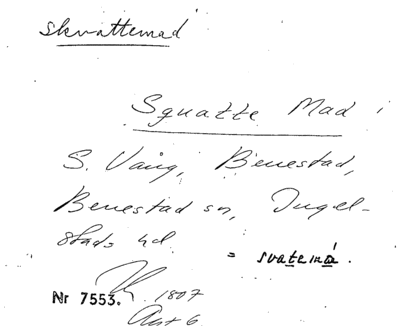 skvattemad
Squatte Mad i
S. Vång, Benestad,
Benestad sn, Ingel-
stads hd.
= svatemá.
Nr 7553. 1807
Akt 6